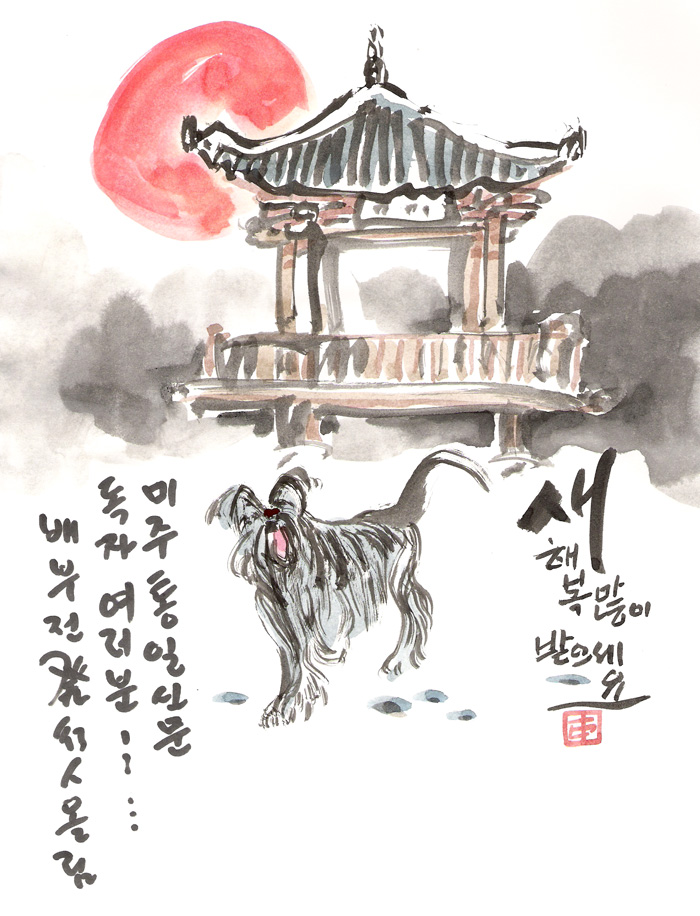 새
해
복 많이
받으세
요
미주 통일신문
독자 여러분 ! ! ...
배부전 올림